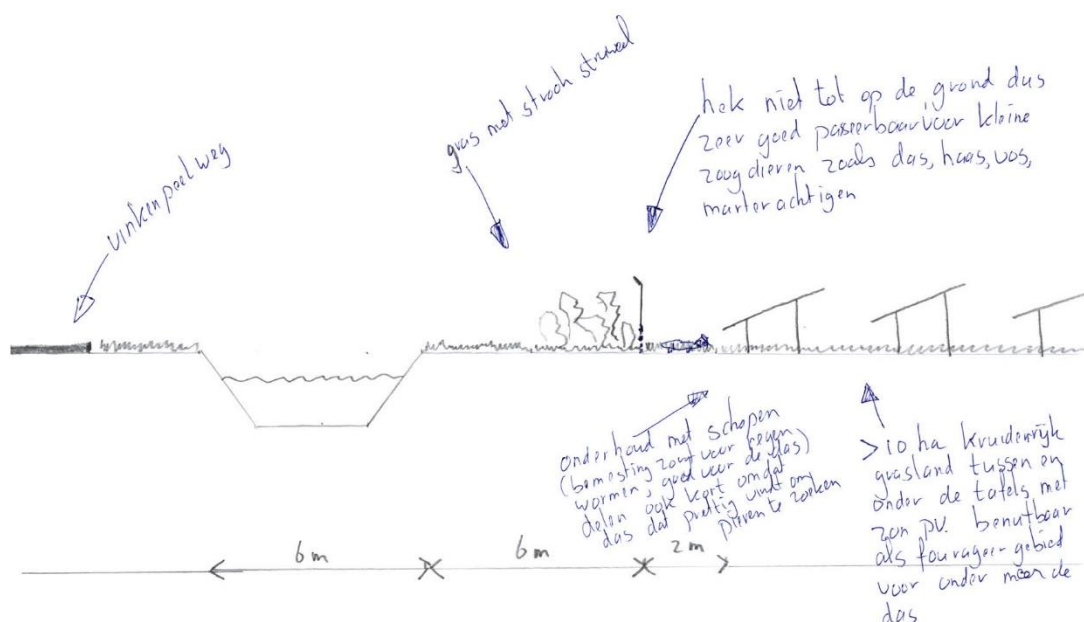 vinkenpeelweg
gras met strook struweel
hek niet tot op de grond dus
zeer goed passeerbaar voor kleine
zoogdieren zoals das, haas, vos,
marterachtigen
onderhoud met schapen
(bemesting zorgt voor regen
wormen, goed voor de das)
delen ook kort omdat
das dat prettig vindt om
pieren te zoeken
>10 ha kruidenrijk
grasland tussen en
onder de tafels met
zon pv. benutbaar
als fourageergebied
voor onder meer de
das
6 m
6 m
2 m